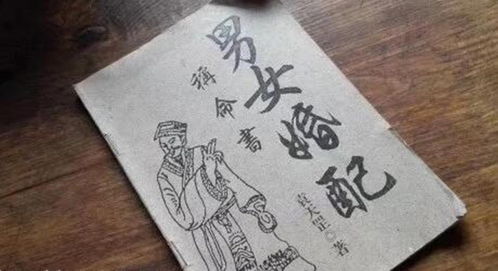 男女婚配
稱命書
袁天罡·著